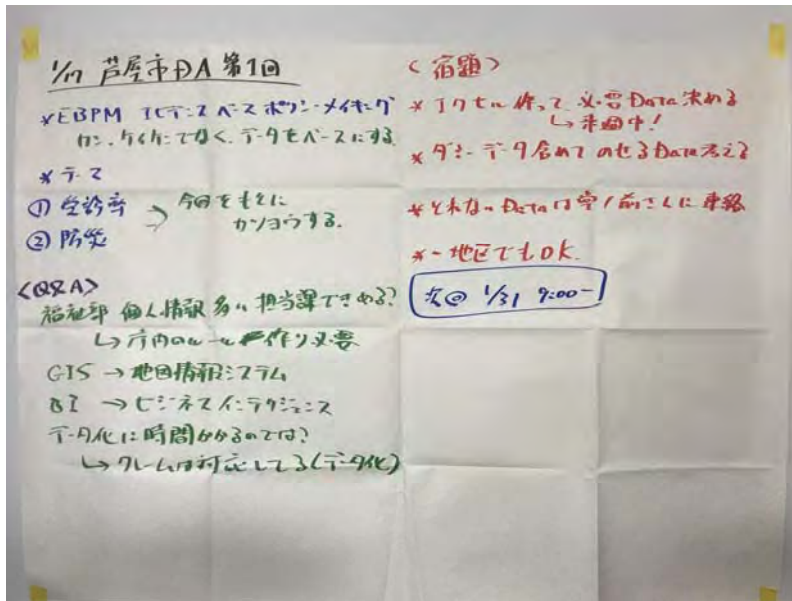 1/17 芦屋市DA 第1回
*EBPM エビデンス ベース ポリシーメイキング
カン、ケイケンでなく、データをベースにする
*テーマ
① 受診率
② 防災
今回をもとに
カツヨウする。
<Q&A>
福祉部 個人情報多い 担当課できめる?
↳ 庁内のルール作り必要
GIS → 地図情報システム
BI → ビジネスインテリジェンス
データ化に時間かかるのでは?
↳ クレームは対応してる(データ化)
<宿題>
*エクセル作って 必要Data決める
↳ 来週中!
*ダミーデータ含めて のせるData考える
*とれないDataは 前さんに連絡
*一地区でもOK.
次@ 1/31 9:00〜